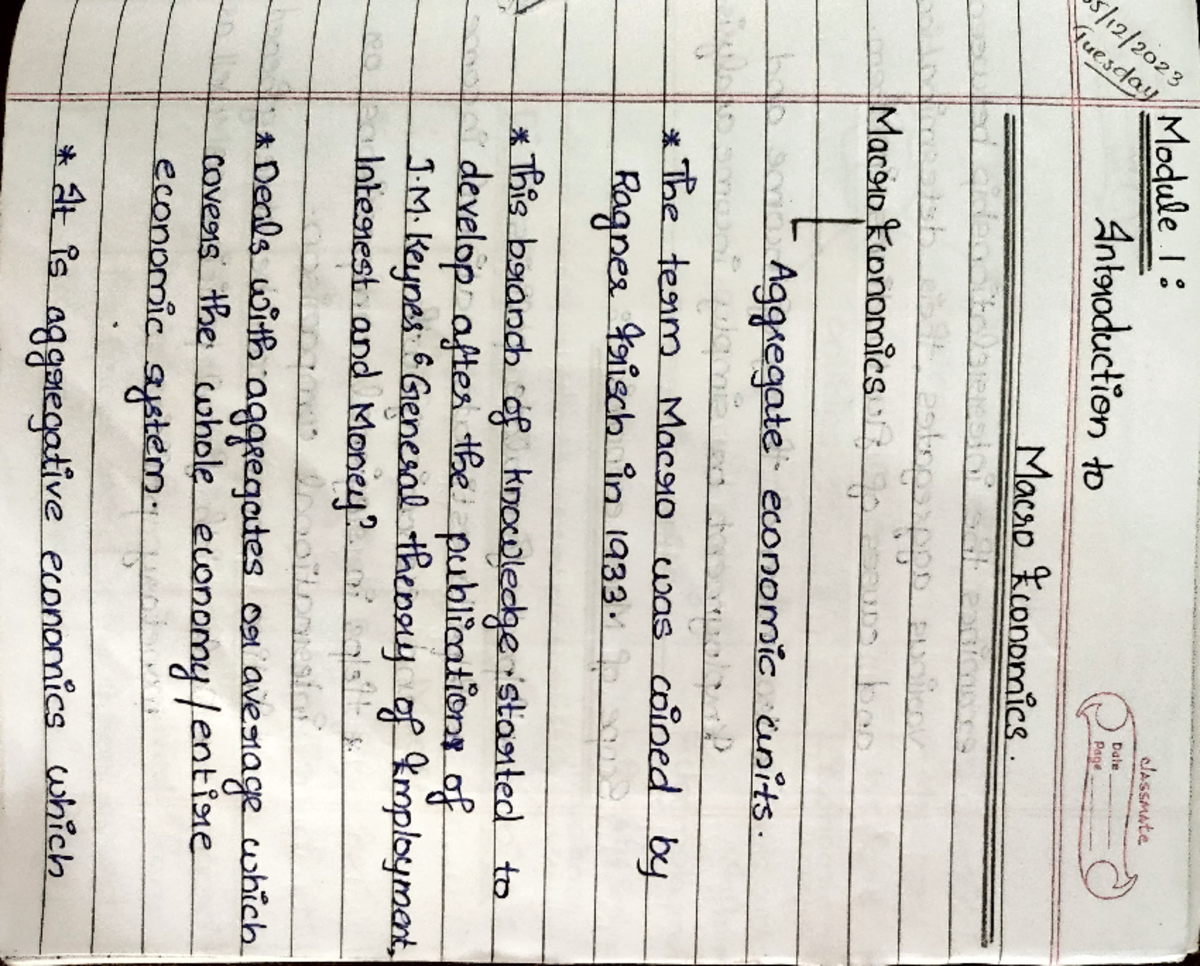 05/12/2023
Tuesday
classmate
Date
Page
Module 1:
Introduction to
Macro Economics.
Macro Economics
Aggregate economic units.
* The term Macro was coined by
Ragner Frisch in 1933.
* This branch of knowledge started to
develop after the publications of
J.M. Keynes "General theory of Employment,
Interest and Money"
* Deals with aggregates or average which
covers the whole economy/entire
economic system.
* It is aggregative economics which